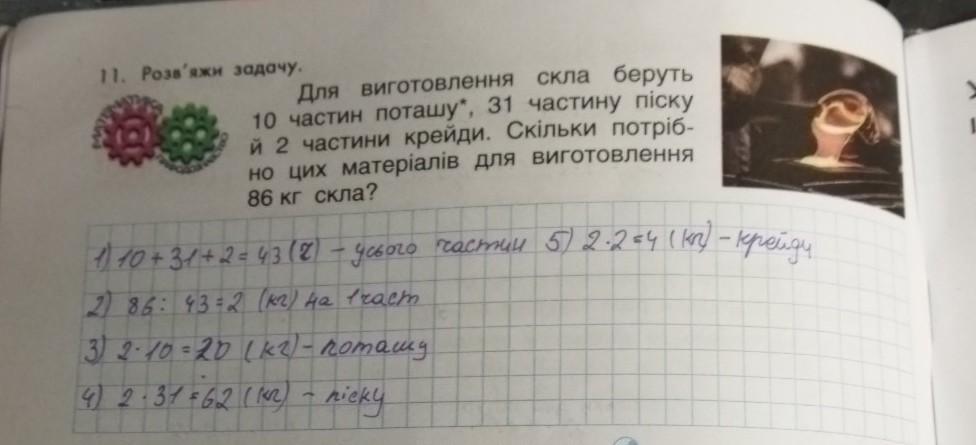 11. Розв'яжи задачу.
МАТЕМАТИКА
Для виготовлення скла беруть
10 частин поташу*, 31 частину піску
й 2 частини крейди. Скільки потріб-
но цих матеріалів для виготовлення
86 кг скла?
1) 10 + 31 + 2 = 43 (ч) – усього частин 5) 2 · 2 = 4 (кг) – крейди
2) 86 : 43 = 2 (кг) на 1 част
3) 2 · 10 = 20 (кг) – поташу
4) 2 · 31 = 62 (кг) – піску